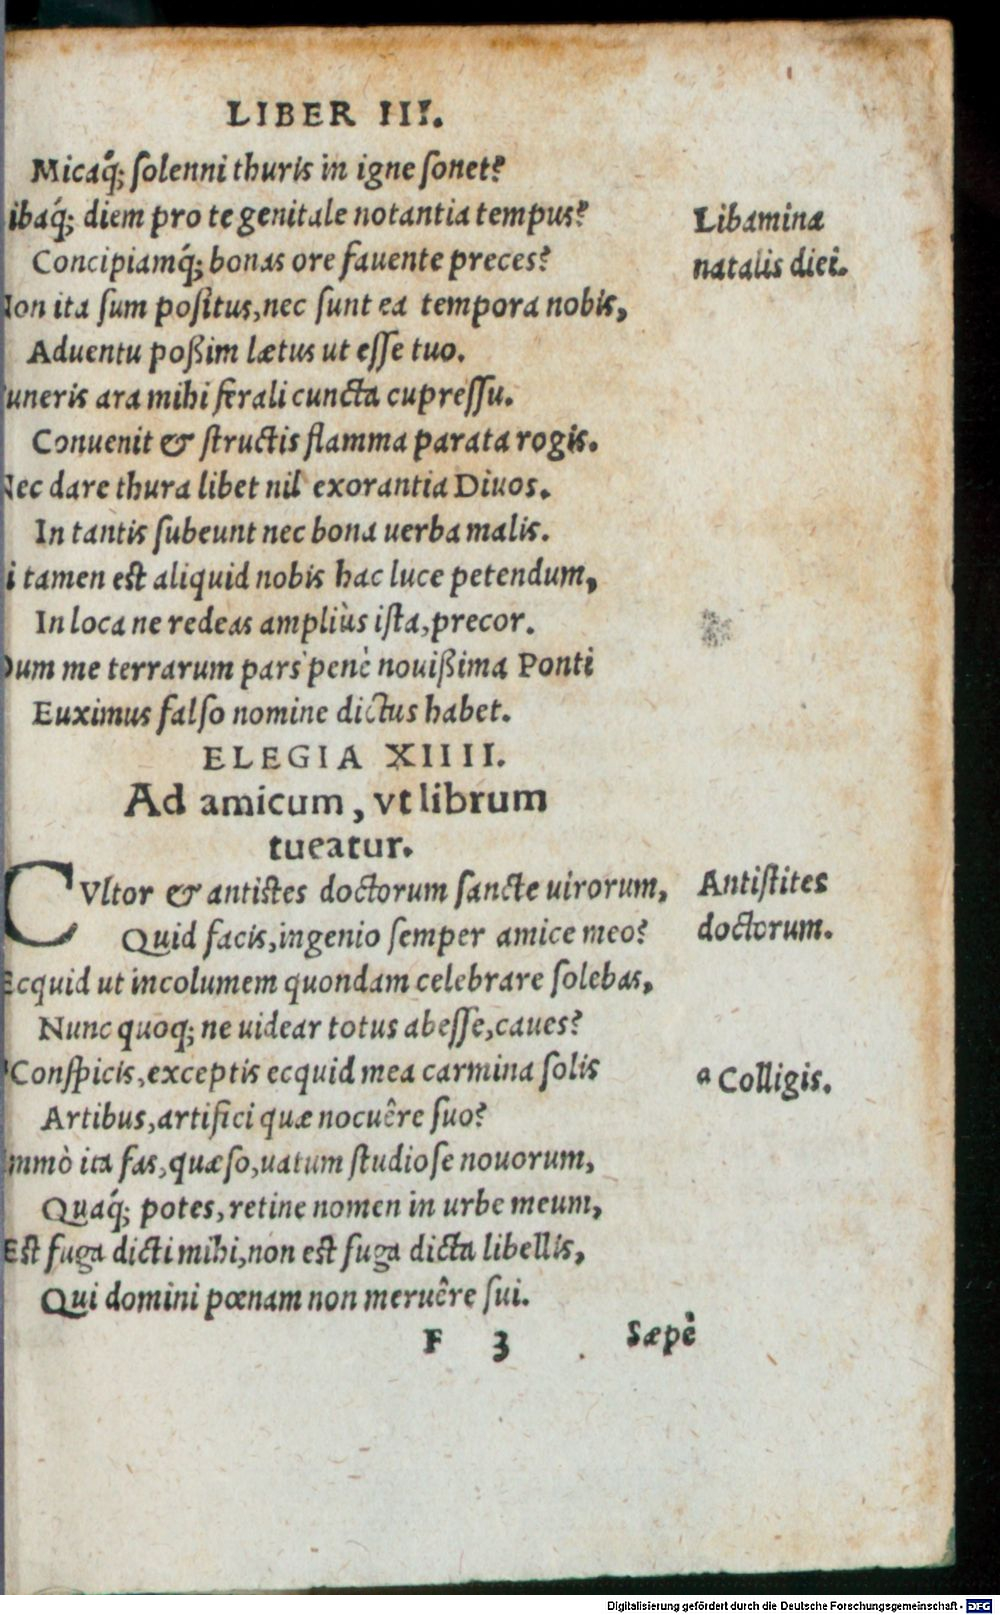 LIBER III.
Micaq́; ſolenni thuris in igne ſonet?
ibaq́; diem pro te genitale notantia tempus?
Libamina
Concipiamq́; bonas ore fauente preces?
natalis diei.
Non ita ſum poſitus, nec ſunt ea tempora nobis,
Aduentu poßim lætus ut eſſe tuo.
uneris ara mihi ferali cuncta cupreſſu.
Conuenit & ſtructis flamma parata rogis.
Nec dare thura libet nil exorantia Diuos.
In tantis ſubeunt nec bona uerba malis.
i tamen est aliquid nobis hac luce petendum,
In loca ne redeas ampliùs iſta, precor.
Dum me terrarum pars penè nouißima Ponti
Euximus falſo nomine dictus habet.
ELEGIA XIIII.
Ad amicum, vt librum
tueatur.
CVltor & antiſtes doctorum ſancte uirorum,
Antiſtites
Quid facis, ingenio ſemper amice meo?
doctorum.
Ecquid ut incolumem quondam celebrare ſolebas,
Nunc quoq; ne uidear totus abeſſe, caues?
ᵃConſpicis, exceptis ecquid mea carmina ſolis
ᵃ Colligis.
Artibus, artifici quæ nocuêre ſuo?
Immò ita fas, quæſo, uatum ſtudioſe nouorum,
Quaq́; potes, retine nomen in urbe meum,
Est fuga dicti mihi, non est fuga dicta libellis,
Qui domini pœnam non meruêre ſui.
F 3
Sæpè
Digitalisierung gefördert durch die Deutsche Forschungsgemeinschaft - DFG